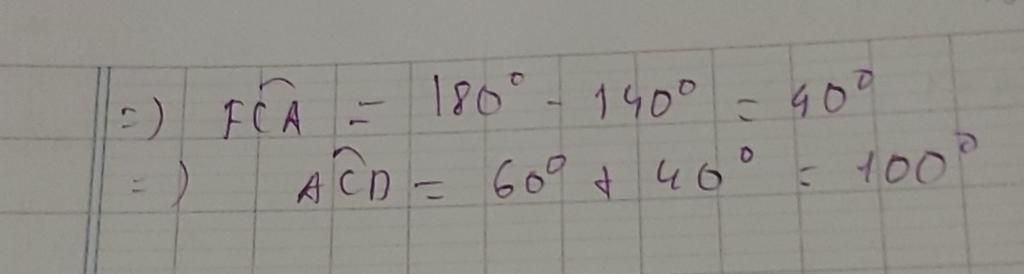 =) FCA = 180° - 140° = 40°
=) ACD = 60° + 40° = 100°